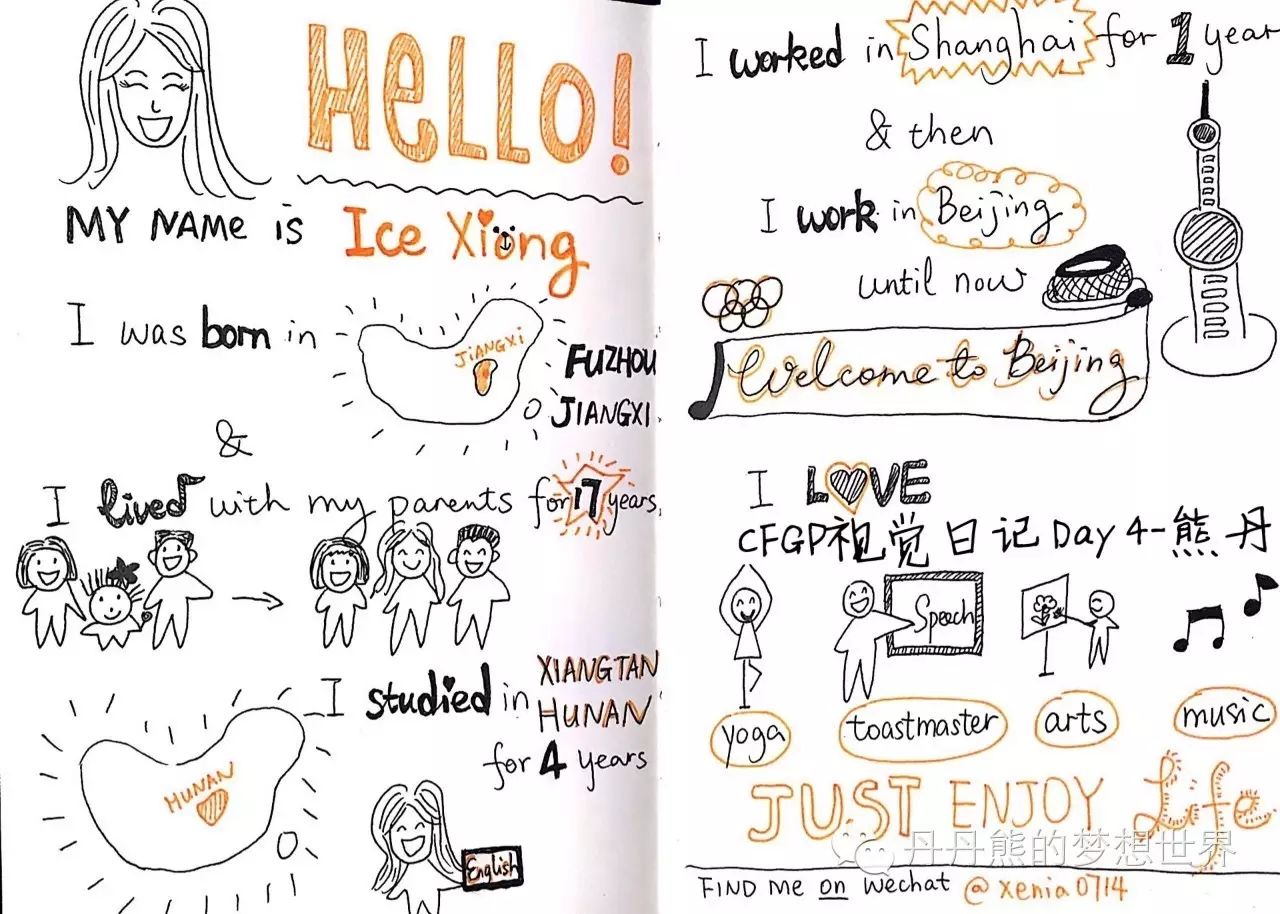 HeLLO!
MY NAME is Ice Xiong
I was born in
JiANGXi
FUZHOU
JIANGXI
&
I lived with my parents for 17 years,
I studied in XIANGTAN
HUNAN
for 4 years
HUNAN
English
I worked in Shanghai for 1 year
& then
I work in Beijing
until now
Welcome to Beijing
I LOVE
CFGP视觉日记Day 4-熊丹
Speech
yoga
toastmaster
arts
music
JUST ENJOY Life
丹丹熊的梦想世界
FIND me on wechat @xenia0714